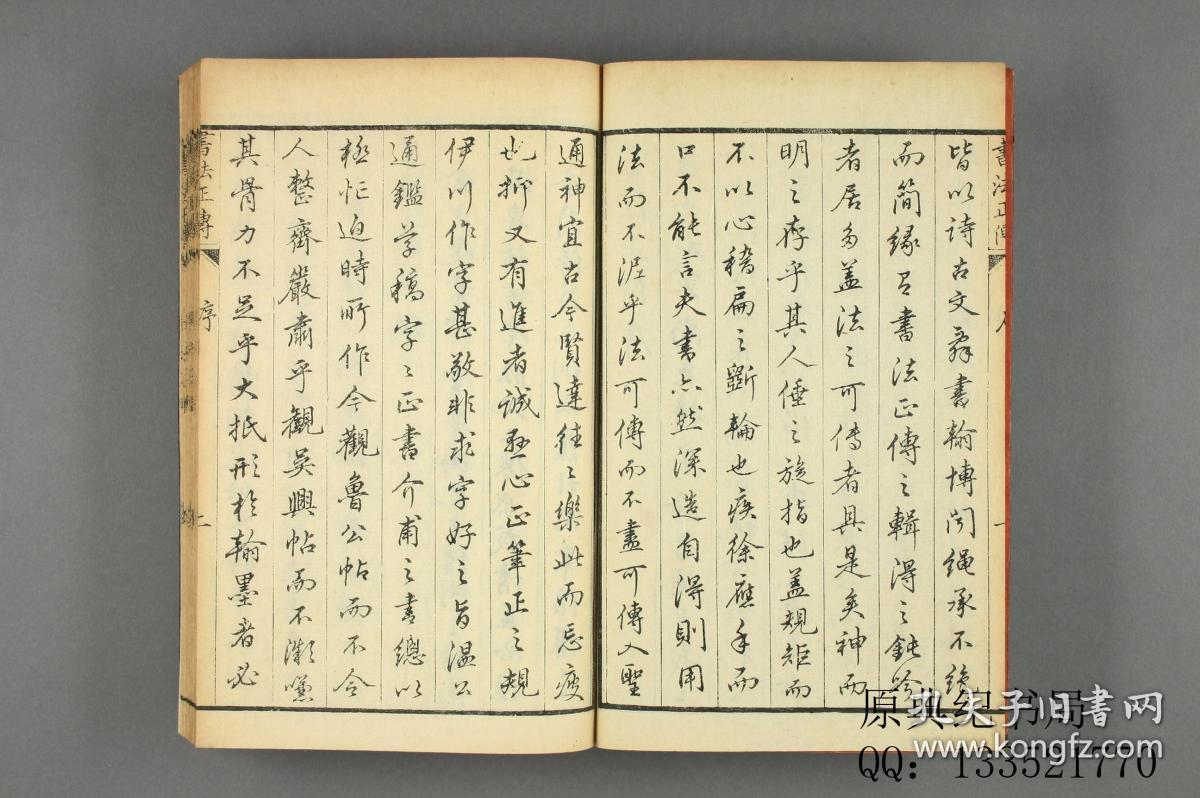 書法正傳
皆以詩古文辭書翰博聞繩承不絶
而簡緣有書法正傳之輯得之鈍吟
者居多蓋法之可傳者具是矣神而
明之存乎其人倕之旋指也蓋規矩而
不以心稽扁之斲輪也疾徐應手而
口不能言夫書亦然深造自得則用
法而不泥乎法可傳而不盡可傳入聖
通神宜古今賢達往々樂此而忘疲
也抑又有進者誠懸心正筆正之規
伊川作字甚敬非求字好之旨溫公
通鑑草稿字々正書介甫之書總以
極忙迫時所作今觀魯公帖而不令
人整齊嚴肅乎觀吳興帖而不漸嘆
其骨力不足乎大抵形於翰墨者必
書法正傳 序 二
原典纪书局
孔夫子旧书网
www.kongfz.com
QQ：133521770